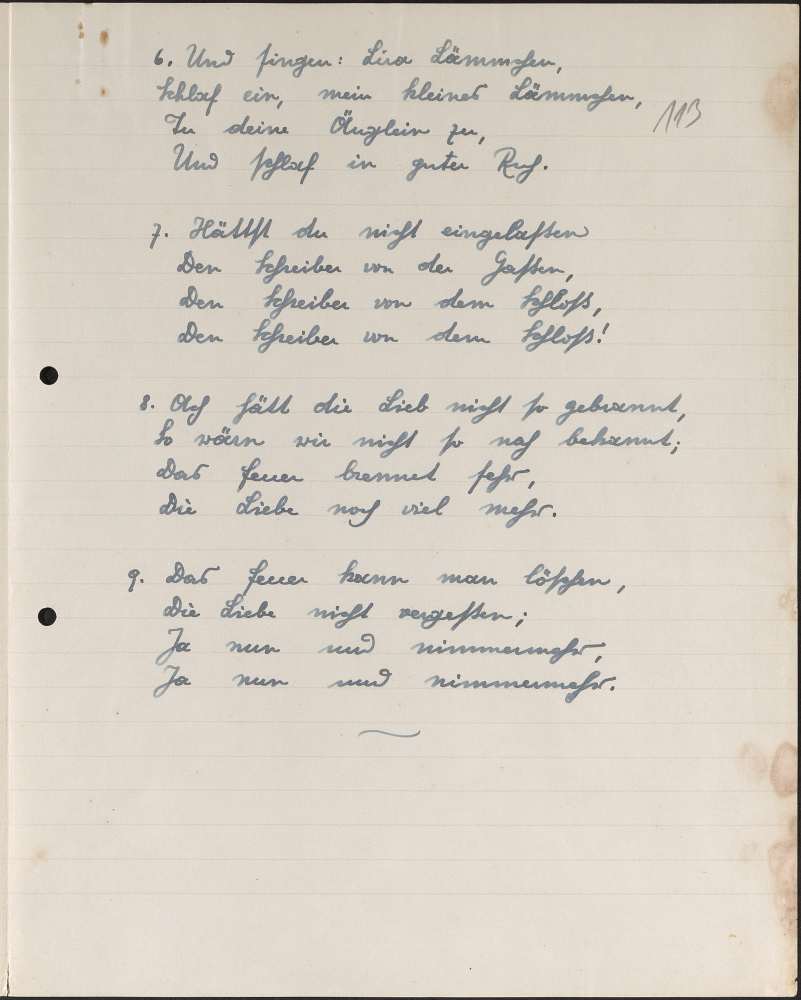 6. Und singen: Lira Lämmchen,
Schlaf ein, mein kleines Lämmchen,
113
Tu deine Äuglein zu,
Und schlaf in guter Ruh.
7. Hättst du nicht eingelassen
Den Schreiber von der Gassen,
Den Schreiber von dem Schloß,
Den Schreiber von dem Schloß!
8. Ach hätt die Lieb nicht so gebrannt,
So wärn wir nicht so nah bekannt;
Das Feuer brennet sehr,
Die Liebe noch viel mehr.
9. Das Feuer kann man löschen,
Die Liebe nicht vergessen;
Ja nun und nimmermehr,
Ja nun und nimmermehr.